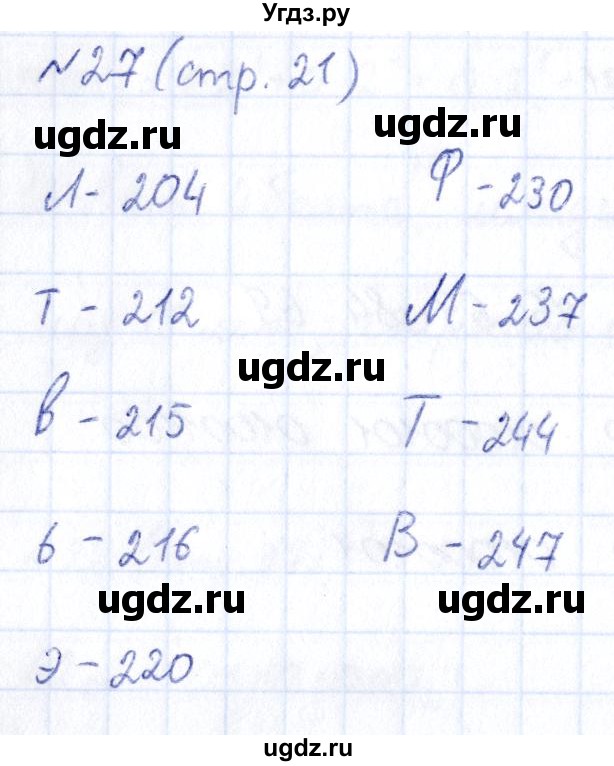 Угдз.ру
№27 (стр. 21)
ugdz.ru
ugdz.ru
Л - 204
Ф - 230
Т - 212
М - 237
ugdz.ru
в - 215
Т - 244
ь - 216
В - 247
ugdz.ru
ugdz.ru
Э - 220
ugdz.ru